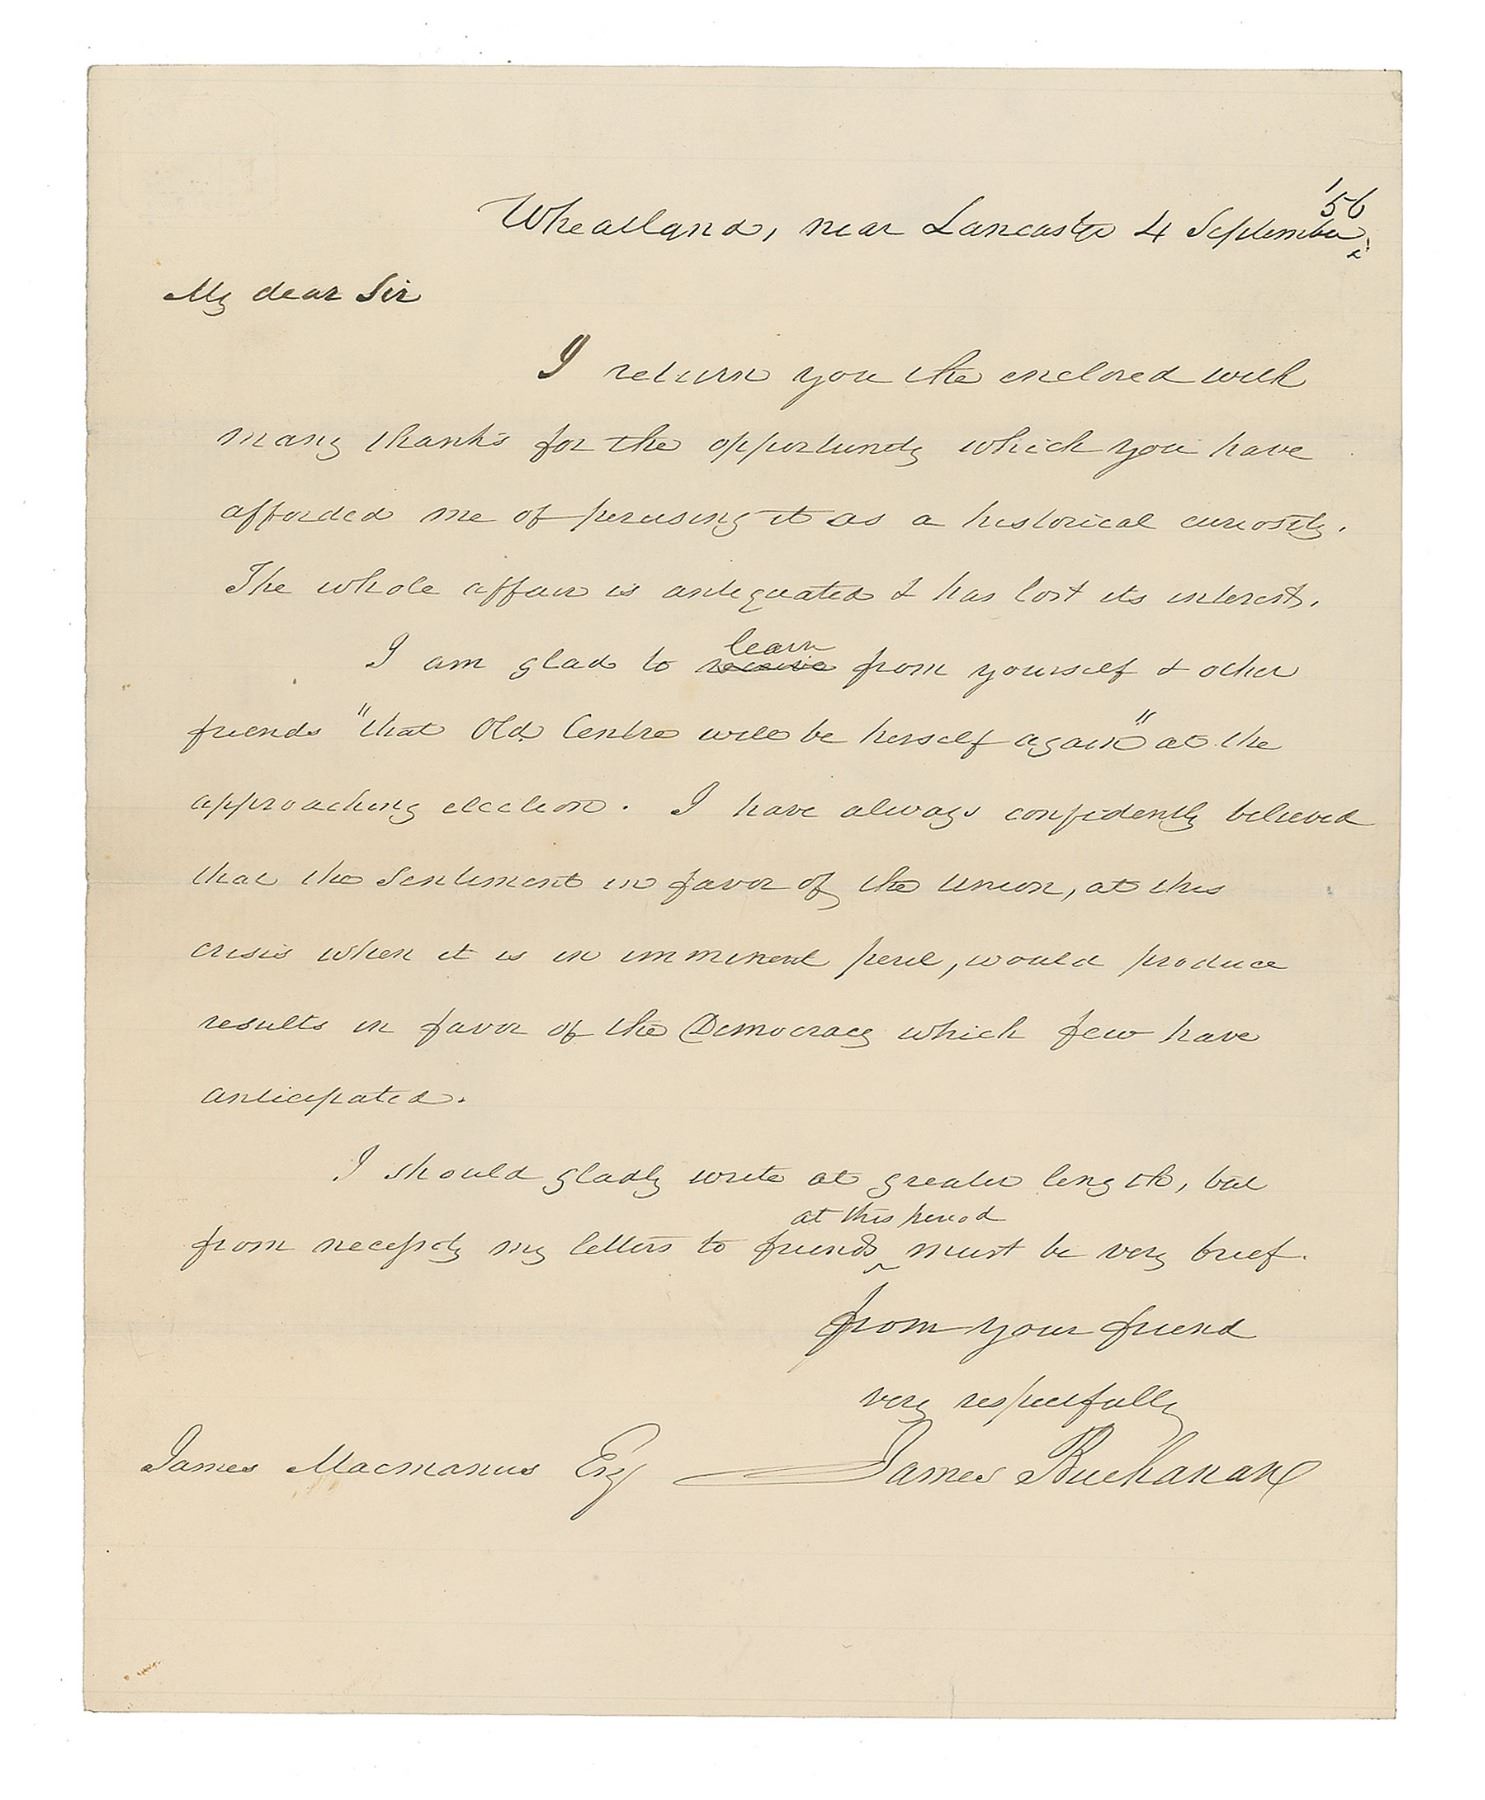 Wheatland, near Lancaster 4 September '56
My dear Sir
I return you the enclosed with
many thanks for the opportunity which you have
afforded me of perusing it as a historical curiosity.
The whole affair is antiquated & has lost its interest.
I am glad to receive learn from yourself & other
friends "that Old Centre will be herself again" at the
approaching election. I have always confidently believed
that the sentiment in favor of the Union, at this
crisis when it is in imminent peril, would produce
results in favor of the Democracy which few have
anticipated.
I should gladly write at greater length, but
at this period
from necessity my letters to friends ^ must be very brief.
from your friend
very respectfully
James Buchanan
James Macmanus Esq